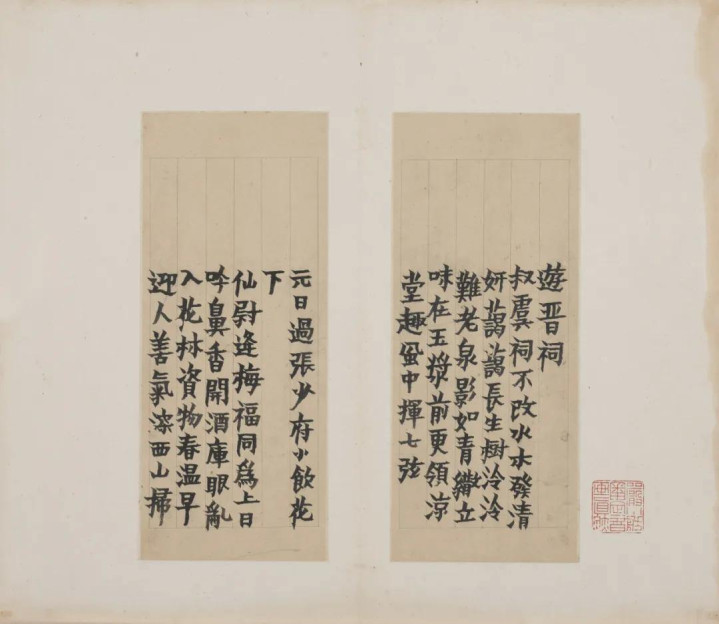 遊晋祠
叔虞祠不改水木發清
妍藹藹長生樹泠泠
難老泉影如青立
味在玉漿前更領涼
堂趣風中揮七弦
元日過張少府小飲花
下
仙尉逢梅福同爲上日
吟鼻香開酒庫眼亂
入花林資物春温早
迎人善氣深西山掃